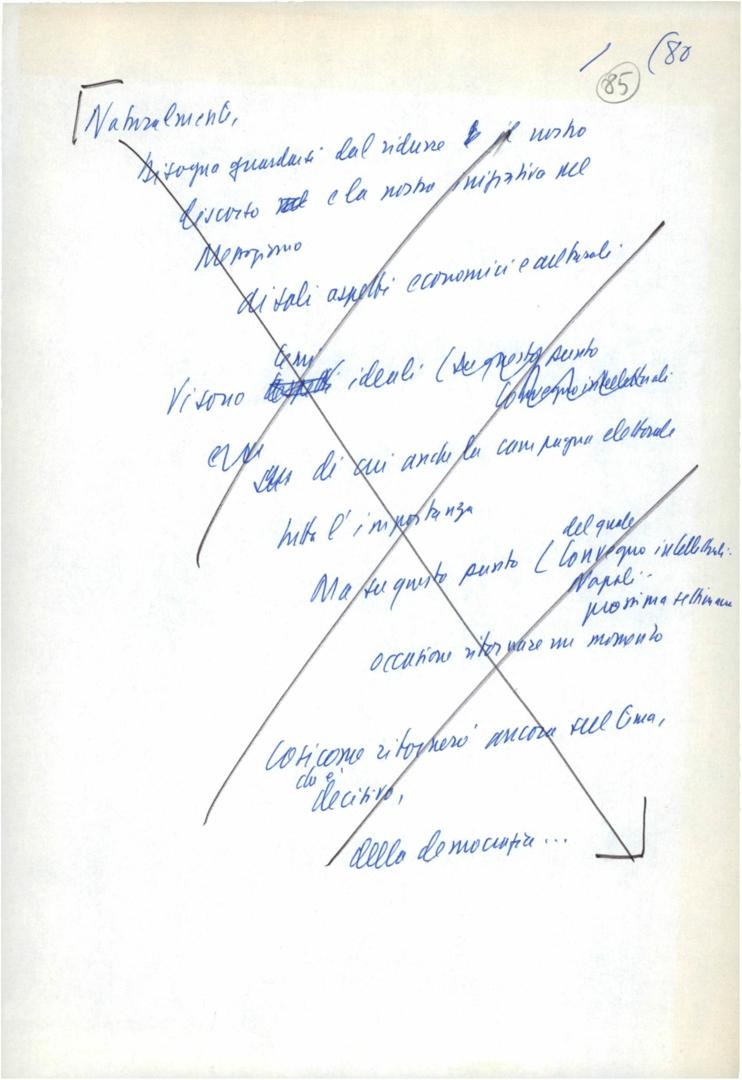 (80
85
Naturalmente,
bisogna guardarsi dal ridurre il nostro
discorso e la nostra iniziativa nel
Mezzogiorno
di soli aspetti economici e culturali.
temi
Vi sono ideali (su questo punto
Convegno intellettuali
di cui anche la campagna elettorale
tutta l'importanza
del quale
Ma su questo punto (Convegno intellettuali.
Napoli..
prossima settimana
occasione ritornare un momento
Così come ritornerò ancora sul tema,
che è
decisivo,
della democrazia...